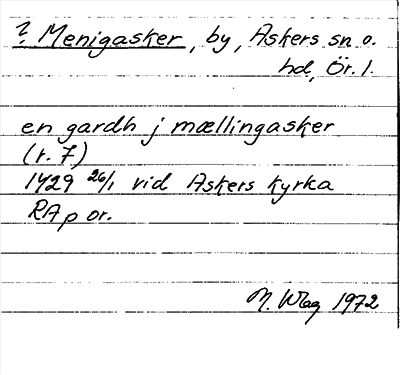 ? Menigasker, by, Askers sn o.
hd, Ör. l.
en gardh j mællingasker
(r. 7)
1429 26/1 vid Askers kyrka
RAp or.
1972